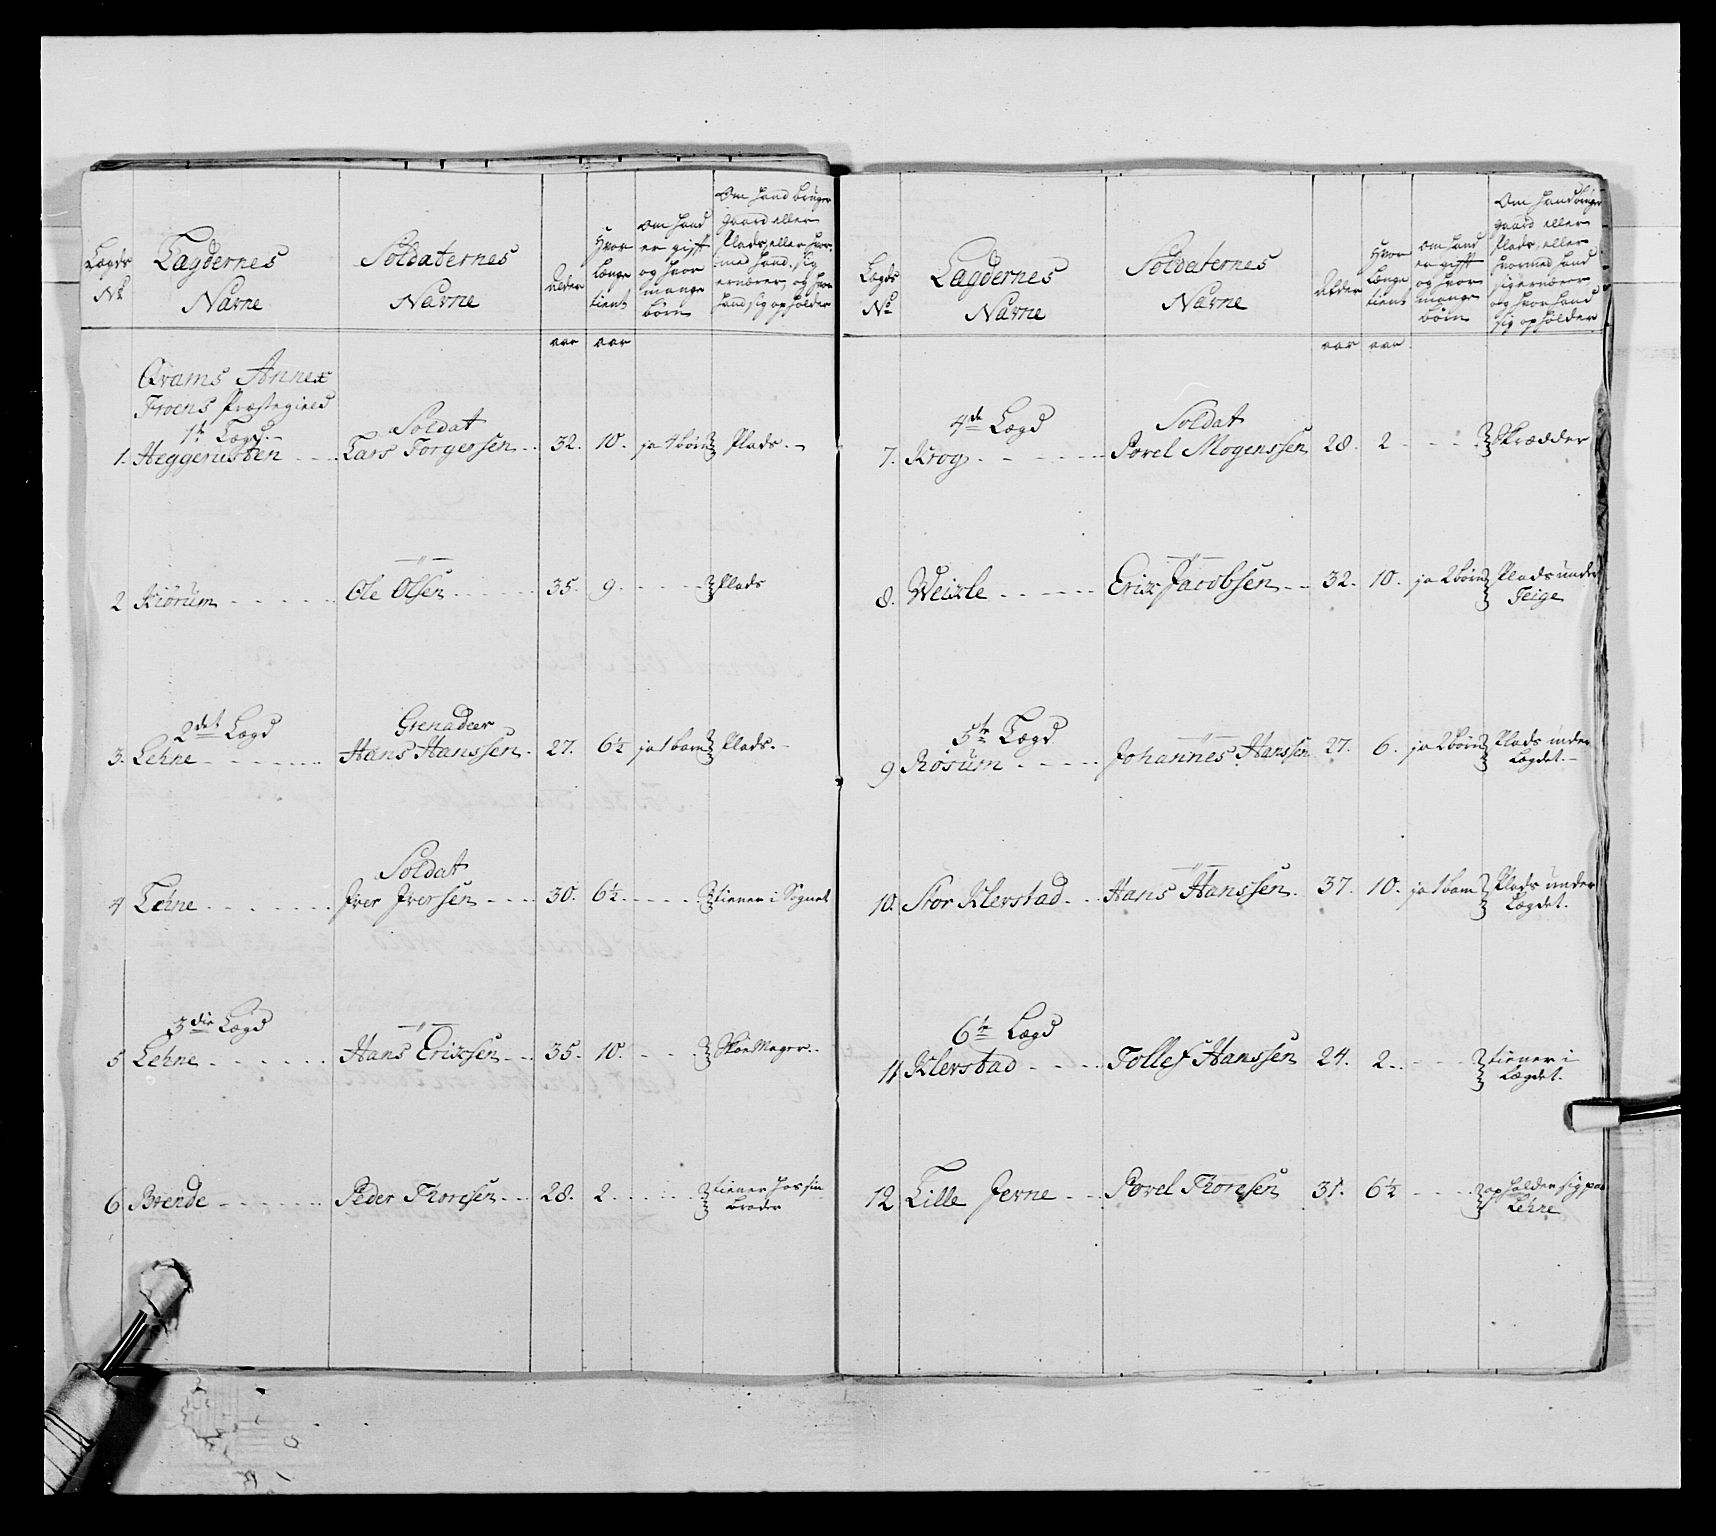 Lægds
No
Lagdernes
Navne
Soldaternes
Navne
Alder
Hvor
længe
tient
om hand
er gift
og hvor
mange
börn
Om hand bruger
gaard eller
Plads, eller hvor
med hand sig
ernærer, og hvor
hand sig opholder
aar aar
Qvams Annex
Froens Præstegield
1te Lægd
Soldat
1. Heggerusten Lars Torgerssen 32. 10. ja 4 börn Plads.
2 Kiörum Ole Olsen 35. 9. Plads
2det Lægd
Grenadeer
3. Lehne Hans Hanssen 27. 6½ ja 1 barn Plads.
Soldat
4 Lehne Iver Iversen 30. 6½ tiener i Sognet
3die Lægd
5 Lehne Hans Erixsen 35. 10. Skoemager
6 Brende Peder Thoresen 28. 2 tiener hos sin
broder
Lægds
No
Lagdernes
Navne
Soldaternes
Navne
Alder
Hvor
længe
tient
om hand
er gift
og hvor
mange
börn
Om hand bruger
gaard eller
Plads, eller
hvormed hand
sig ernærer
og hvor hand
sig opholder
aar aar
4de Lægd
Soldat
7. Krog Povel Mogenssen 28. 2 Skrædder
8. Weixle Erix Jacobsen 32. 10. ja 2 börn Plads under
Teige
5te Lægd
9 Rosum Johannes Hanssen 27. 6. ja 2 börn Plads under
Lægdet.
10. Stor Klevstad Hans Hanssen 37. 10. ja 1 barn Plads under
Lægdet.
6te Lægd
11 Klevstad Tollef Hanssen 24. 2. tiener i
Lægdet.
12 Lille Jerne Povel Thoresen 31. 6½ opholder sig paa
Lehne